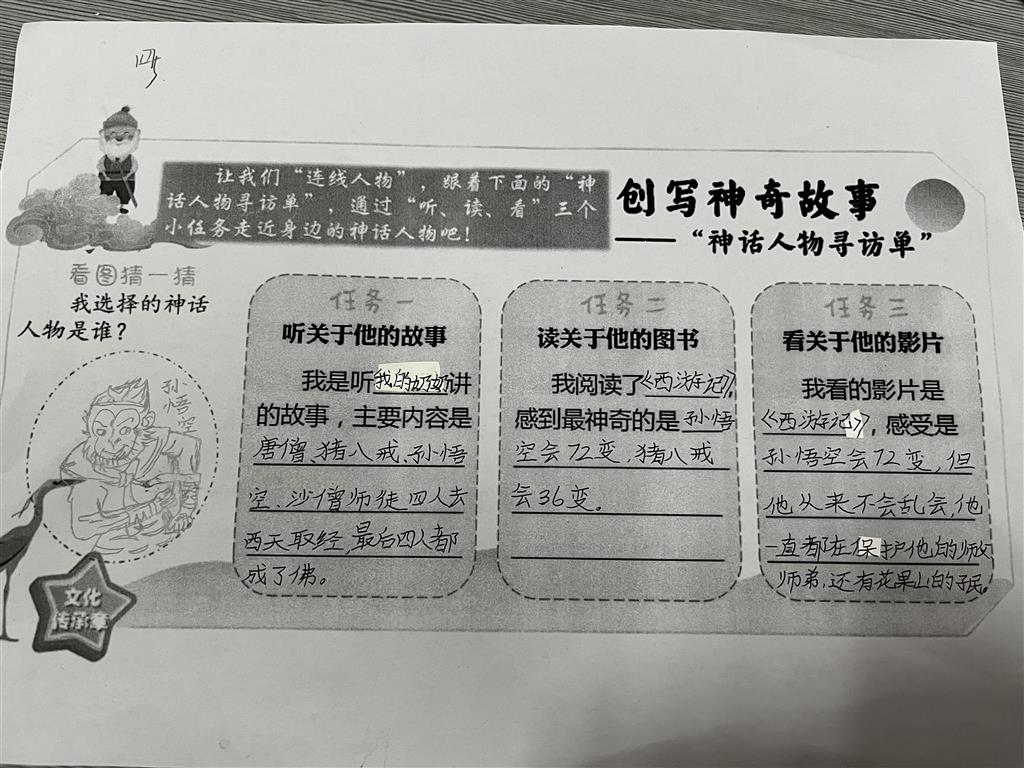 让我们“连线人物”，跟着下面的“神
话人物寻访单”，通过“听、读、看”三个
小任务走近身边的神话人物吧！
创写神奇故事
——“神话人物寻访单”
看图猜一猜
我选择的神话
人物是谁？
孙悟空
文化
传承章
任务一
听关于他的故事
我是听我的奶奶讲
的故事，主要内容是
唐僧、猪八戒、孙悟
空、沙僧师徒四人去
西天取经，最后四人都
成了佛。
任务二
读关于他的图书
我阅读了《西游记》，
感到最神奇的是孙悟
空会72变，猪八戒
会36变。
任务三
看关于他的影片
我看的影片是
《西游记》，感受是
孙悟空会72变，但
他从来不会乱会，他
一直都在保护他的师父
师弟，还有花果山的子民。